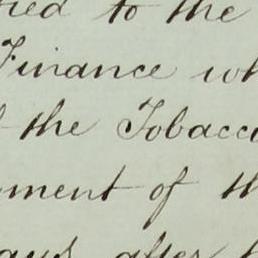 ried to the
Finance wh
the Tobacco
ment of th
days after